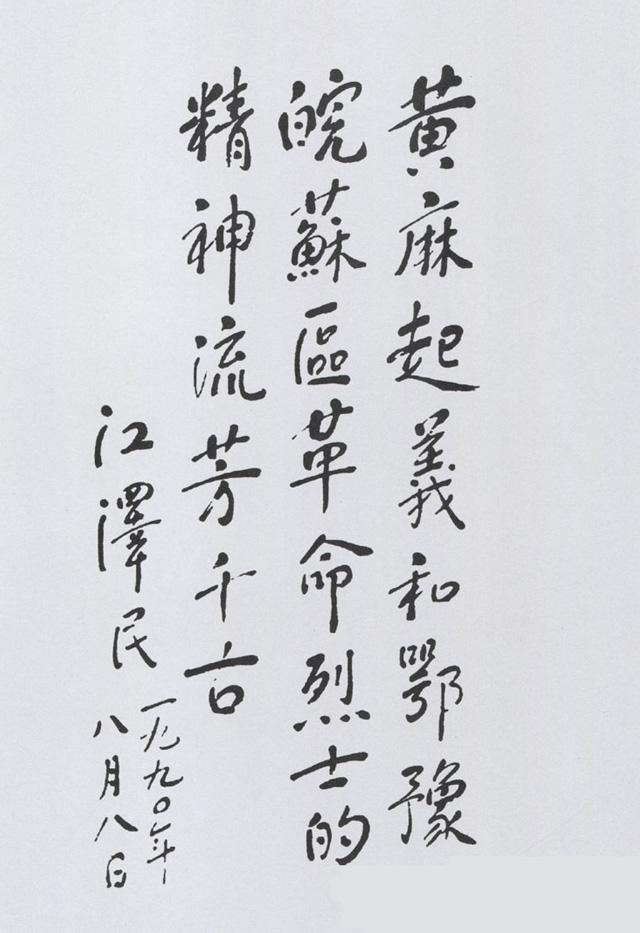 黄麻起義和鄂豫
皖蘇區革命烈士的
精神流芳千古
江澤民
一九九〇年
八月八日